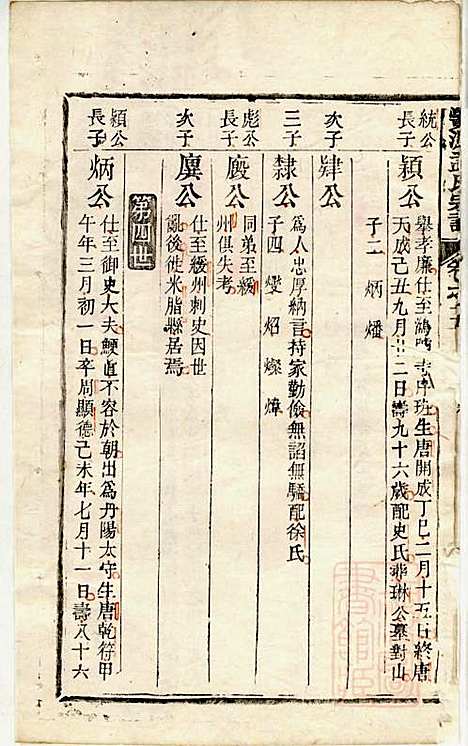 統公
長子
穎公
舉孝廉仕至鴻臚寺序班生唐開成丁巳二月十五日終唐
天成己丑九月廿二日壽九十六歲配史氏葬琳公墓對山
子二 炳 燔
次子
肄公
三子
隸公
為人忠厚納言持家勤儉無諂無驕配徐氏
子四 燮 炤 燦 煒
彪公
長子
廄公
同弟至緩
州俱失考
次子
廙公
仕至綏州刺史因世
亂後徙米脂縣居焉
第四世
穎公
長子
炳公
仕至御史大夫鯁直不容於朝出為丹陽太守生唐乾符甲
午年三月初一日卒周顯德己未年七月十一日壽八十六